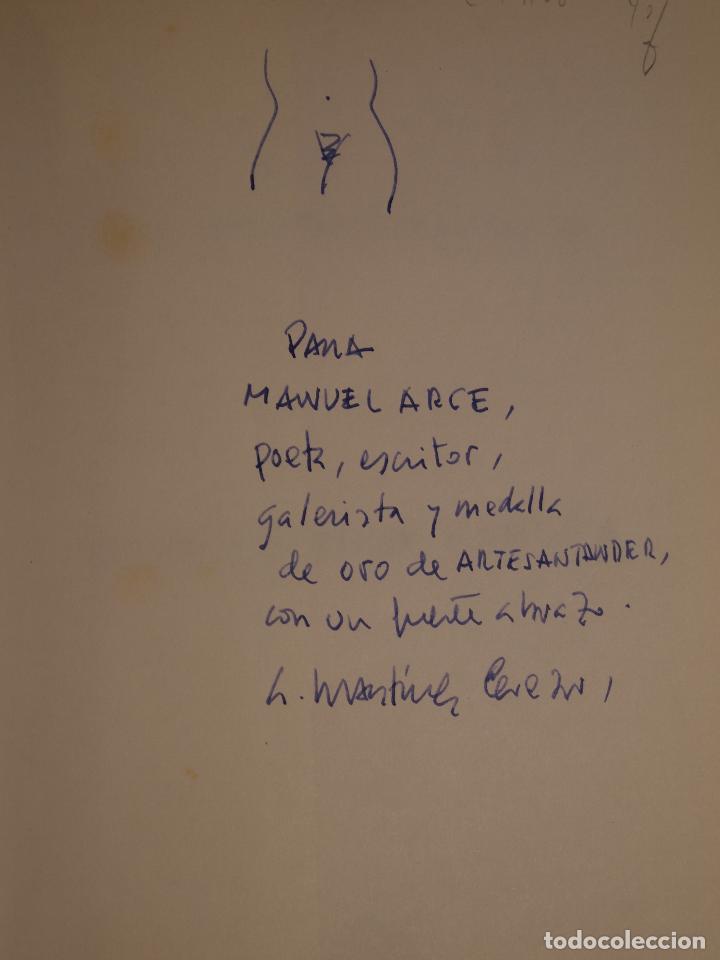 PARA
MANUEL ARCE,
poeta, escritor,
galerista y medalla
de oro de ARTESANTANDER,
con un fuerte abrazo.
A. Martínez Cerezo,
todocoleccion